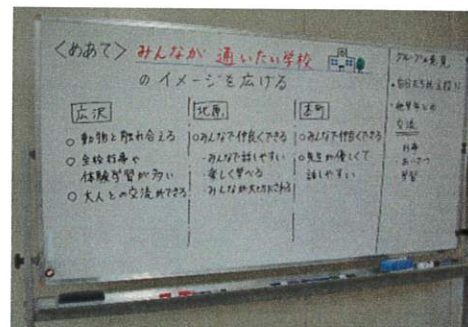 〈めあて〉 みんなが 通いたい学校
のイメージを広げる
広沢
○ 動物と触れ合える
○ 全校行事や
体験学習が多い
○ 大人との交流ができる
北原
○みんなで仲良くできる
・みんなで話しやすい
・楽しく学べる
みんなが大切にされる
本町
○みんなで仲良くできる
○先生が優しくて
話しやすい
グループの意見
交流
行事
あいさつ
学習